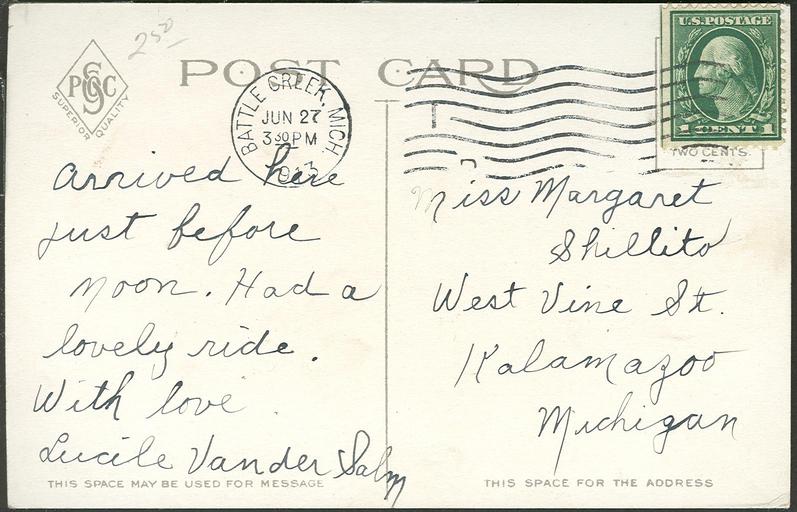 250
POST CARD
U.S. POSTAGE
1 CENT 1
TWO CENTS.
PSGC
SUPERIOR QUALITY
BATTLE CREEK, MICH.
JUN 27
3 30 PM
1913
Arrived here
just before
noon. Had a
lovely ride.
With love
Lucile Vander Salm
Miss Margaret
Shillito
West Vine St.
Kalamazoo
Michigan
THIS SPACE MAY BE USED FOR MESSAGE
THIS SPACE FOR THE ADDRESS